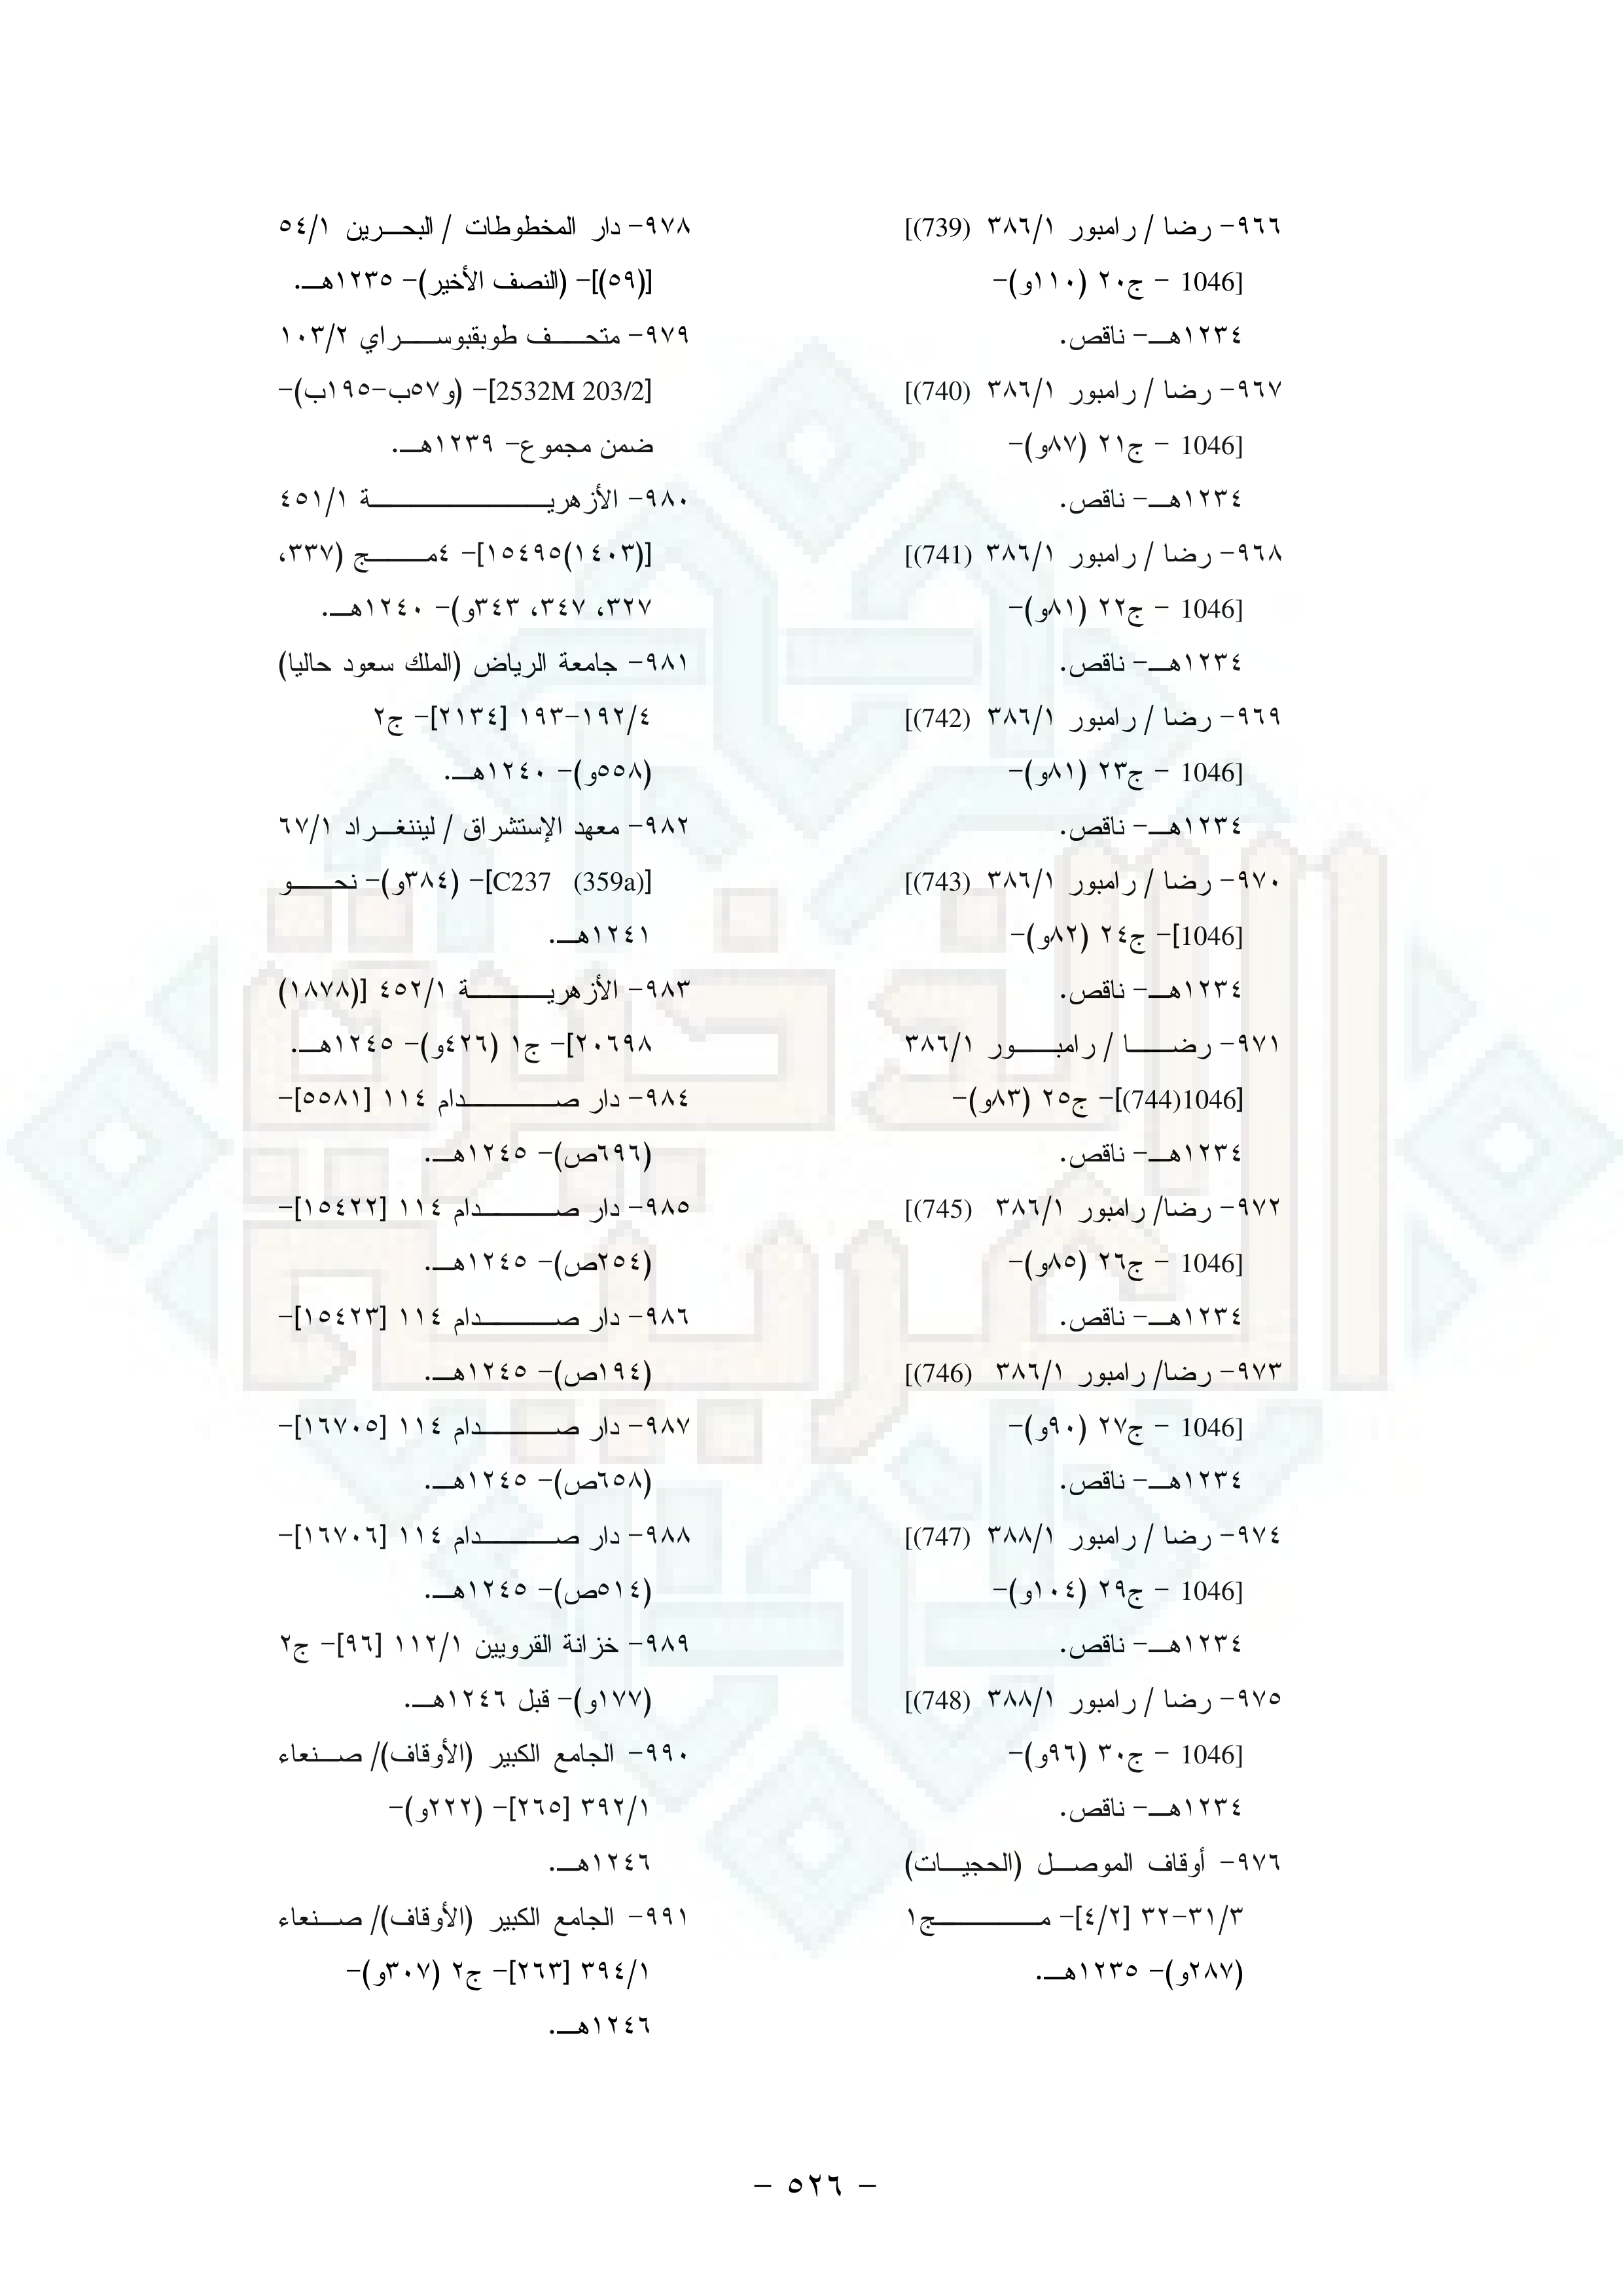 ٩٦٦- رضا / رامبور ٣٨٦/١ (739)]
[1046 - ج٢٠ (١١٠و)-
١٢٣٤هـ- ناقص.
٩٦٧- رضا / رامبور ٣٨٦/١ (740)]
[1046 - ج٢١ (٨٧و)-
١٢٣٤هـ- ناقص.
٩٦٨- رضا / رامبور ٣٨٦/١ (741)]
[1046 - ج٢٢ (٨١و)-
١٢٣٤هـ- ناقص.
٩٦٩- رضا / رامبور ٣٨٦/١ (742)]
[1046 - ج٢٣ (٨١و)-
١٢٣٤هـ- ناقص.
٩٧٠- رضا / رامبور ٣٨٦/١ (743)]
[1046]- ج٢٤ (٨٢و)-
١٢٣٤هـ- ناقص.
٩٧١- رضا / رامبور ٣٨٦/١
[1046(744)]- ج٢٥ (٨٣و)-
١٢٣٤هـ- ناقص.
٩٧٢- رضا/ رامبور ٣٨٦/١ (745)]
[1046 - ج٢٦ (٨٥و)-
١٢٣٤هـ- ناقص.
٩٧٣- رضا/ رامبور ٣٨٦/١ (746)]
[1046 - ج٢٧ (٩٠و)-
١٢٣٤هـ- ناقص.
٩٧٤- رضا / رامبور ٣٨٨/١ (747)]
[1046 - ج٢٩ (١٠٤و)-
١٢٣٤هـ- ناقص.
٩٧٥- رضا / رامبور ٣٨٨/١ (748)]
[1046 - ج٣٠ (٩٦و)-
١٢٣٤هـ- ناقص.
٩٧٦- أوقاف الموصل (الحجيات)
٣١/٣-٣٢ [٤/٢]- مج١
(٢٨٧و)- ١٢٣٥هـ.
٩٧٨- دار المخطوطات / البحرين ٥٤/١
[(٥٩)]- (النصف الأخير)- ١٢٣٥هـ.
٩٧٩- متحف طوبقبوسراي ١٠٣/٢
[2532M 203/2]- (و٥٧ب-١٩٥ب)-
ضمن مجموع- ١٢٣٩هـ.
٩٨٠- الأزهرية ٤٥١/١
[(١٤٠٣)١٥٤٩٥]- ٤مج (٣٣٧،
٣٢٧، ٣٤٧، ٣٤٣و)- ١٢٤٠هـ.
٩٨١- جامعة الرياض (الملك سعود حاليا)
١٩٢/٤-١٩٣ [٢١٣٤]- ج٢
(٥٥٨و)- ١٢٤٠هـ.
٩٨٢- معهد الإستشراق / ليننغراد ٦٧/١
[C237 (359a)]- (٣٨٤و)- نحو
١٢٤١هـ.
٩٨٣- الأزهرية ٤٥٢/١ [(١٨٧٨)
٢٠٦٩٨]- ج١ (٤٢٦و)- ١٢٤٥هـ.
٩٨٤- دار صدام ١١٤ [٥٥٨١]-
(٦٩٦ص)- ١٢٤٥هـ.
٩٨٥- دار صدام ١١٤ [١٥٤٢٢]-
(٢٥٤ص)- ١٢٤٥هـ.
٩٨٦- دار صدام ١١٤ [١٥٤٢٣]-
(١٩٤ص)- ١٢٤٥هـ.
٩٨٧- دار صدام ١١٤ [١٦٧٠٥]-
(٦٥٨ص)- ١٢٤٥هـ.
٩٨٨- دار صدام ١١٤ [١٦٧٠٦]-
(٥١٤ص)- ١٢٤٥هـ.
٩٨٩- خزانة القرويين ١١٢/١ [٩٦]- ج٢
(١٧٧و)- قبل ١٢٤٦هـ.
٩٩٠- الجامع الكبير (الأوقاف)/ صنعاء
٣٩٢/١ [٢٦٥]- (٢٢٢و)-
١٢٤٦هـ.
٩٩١- الجامع الكبير (الأوقاف)/ صنعاء
٣٩٤/١ [٢٦٣]- ج٢ (٣٠٧و)-
١٢٤٦هـ.
- ٥٢٦ -
الذخيرة
العربية